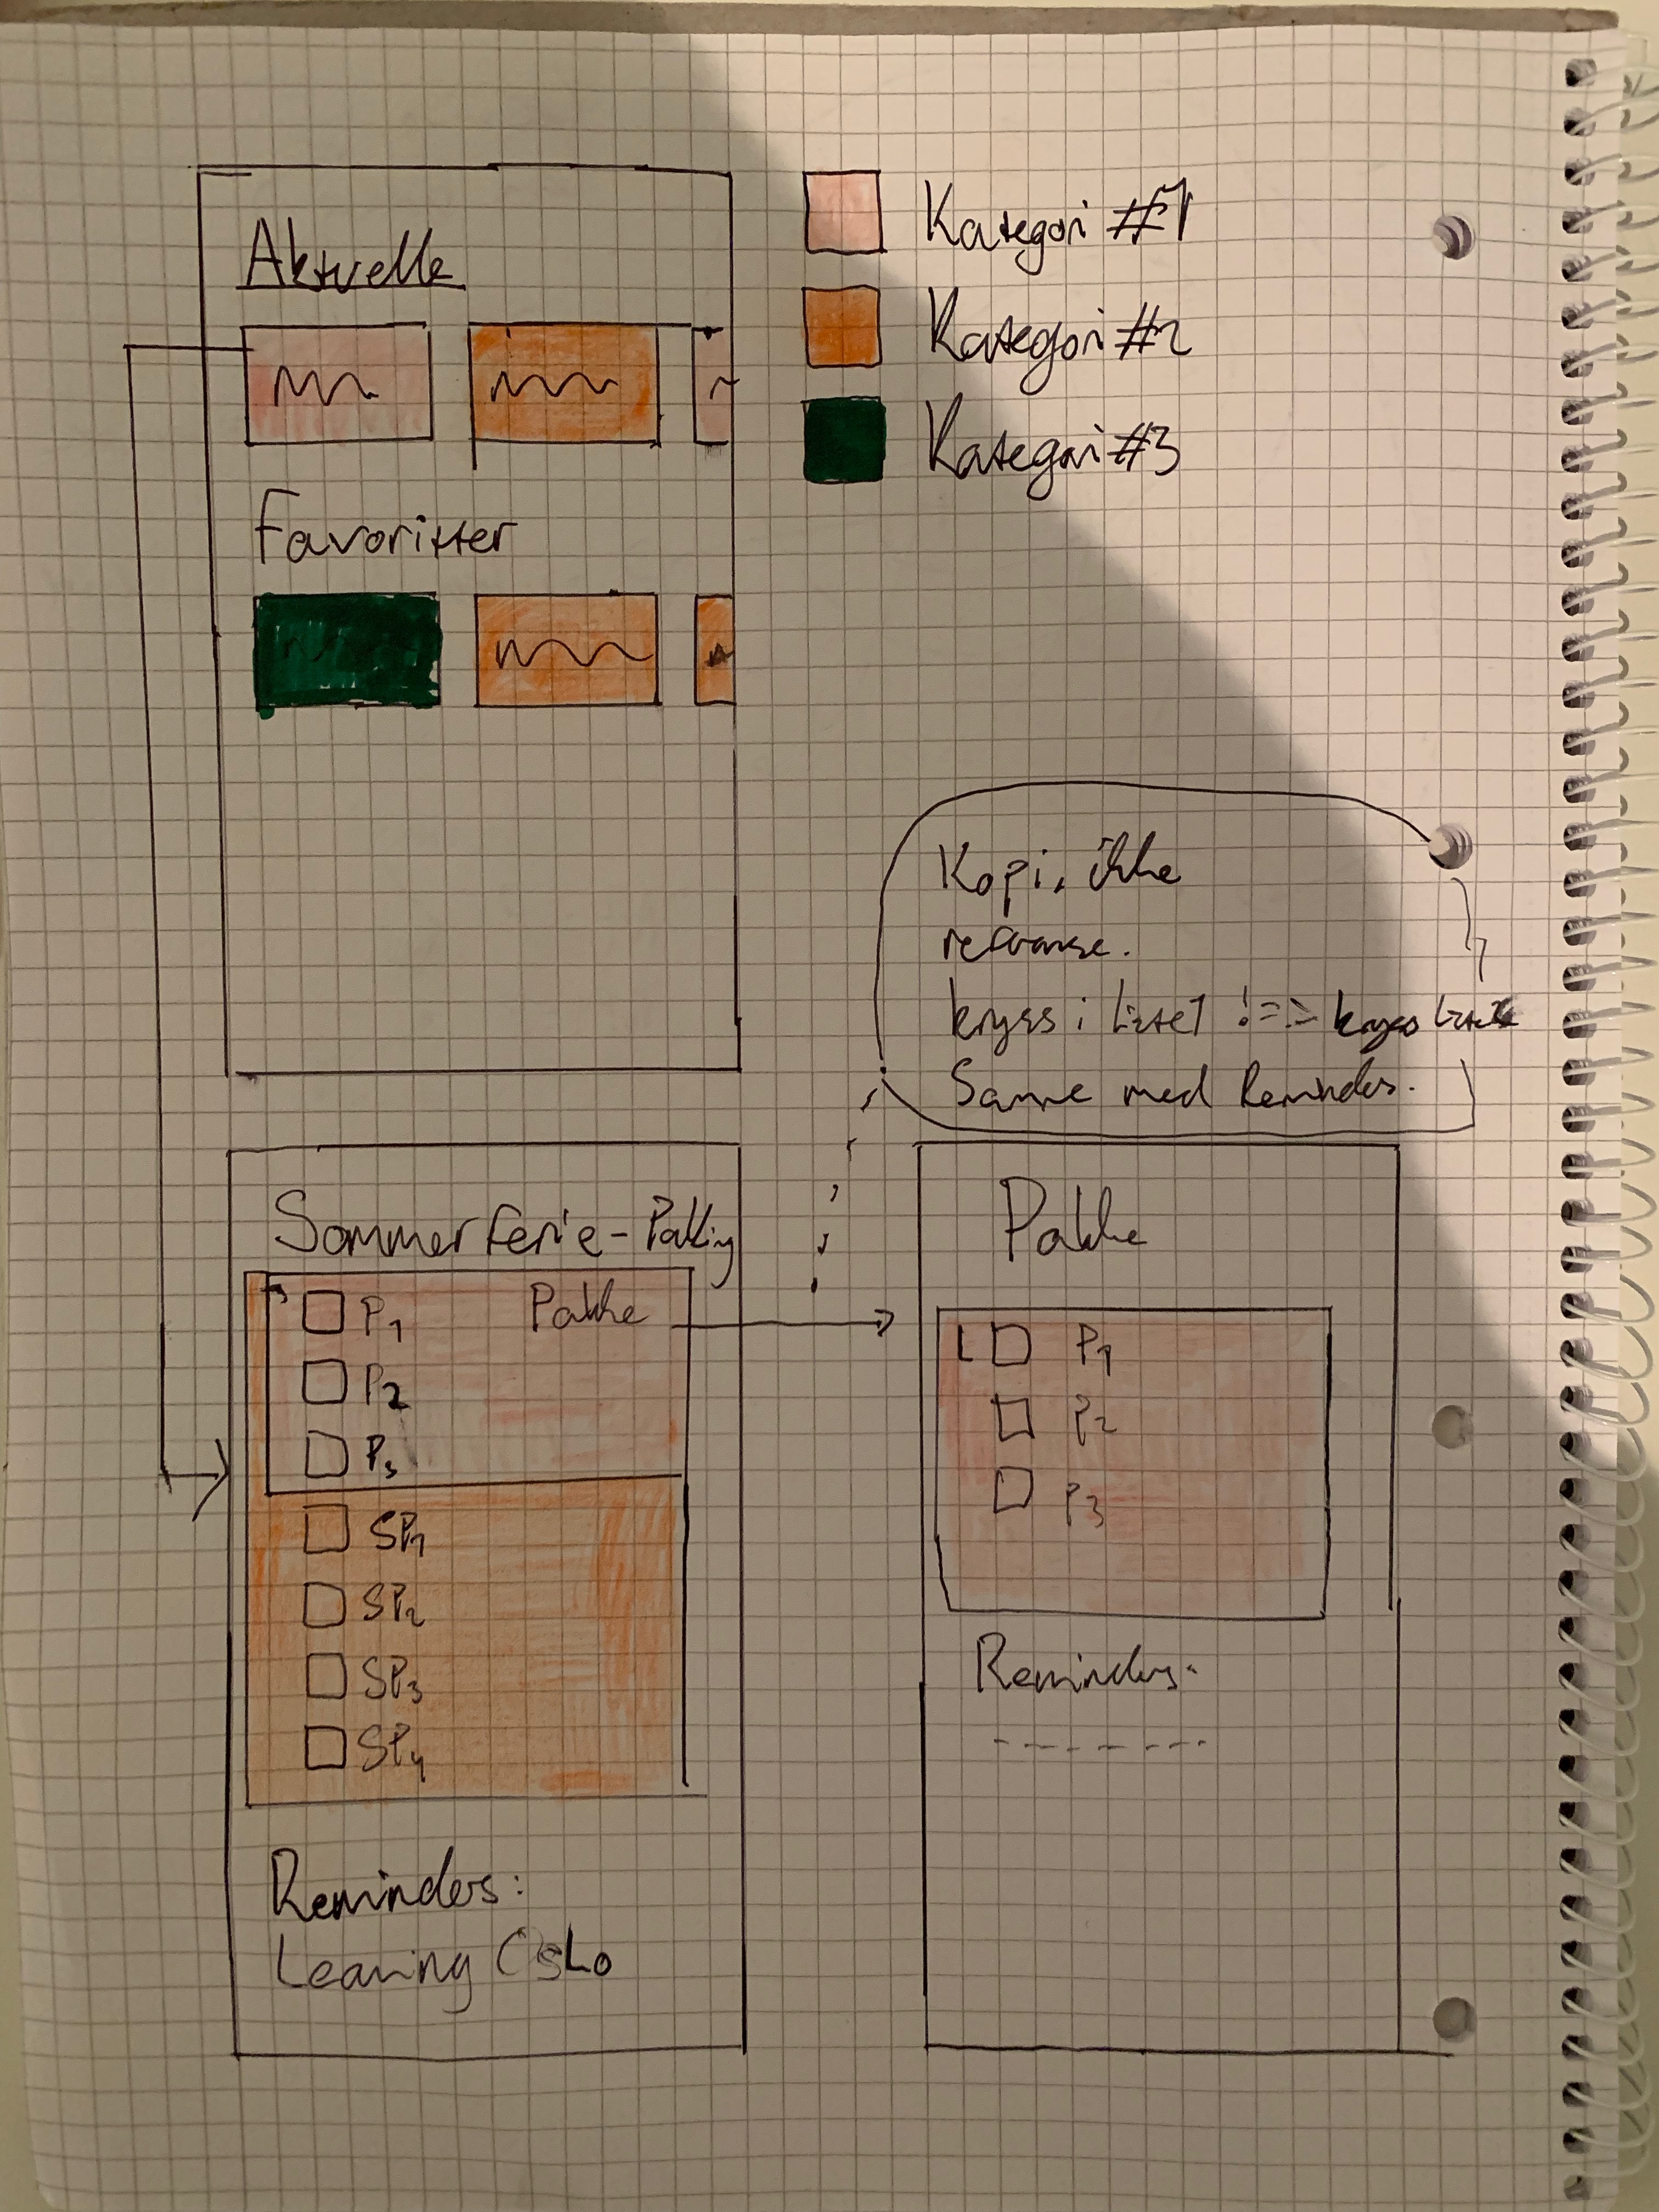 Aktuelle
Favoritter
Kategori #1
Kategori #2
Kategori #3
Kopi, ikke
referanse.
kryss i liste1 !== kryss liste
Samme med Reminders.
Sommerferie-Pakking
P1 Pakke
P2
P3
SP1
SP2
SP3
SP4
Reminders:
Leaving Oslo
Pakke
P1
P2
P3
Reminders.